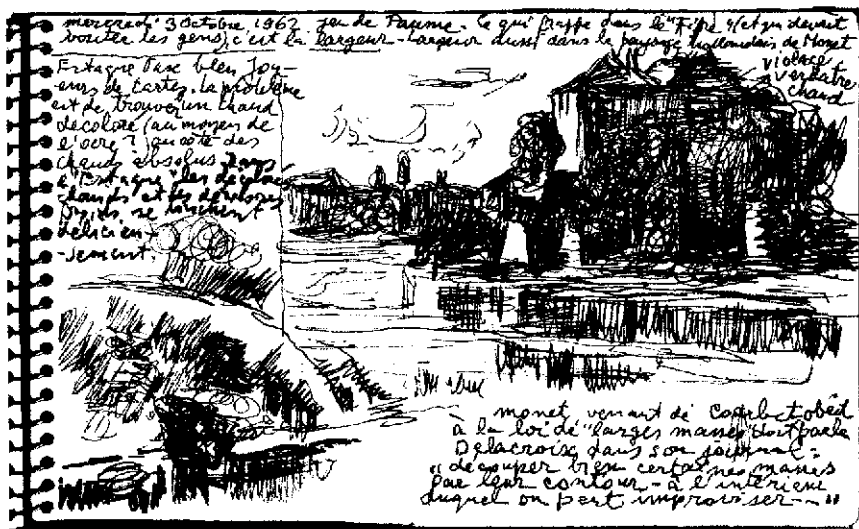 mercredi 3 Octobre 1962. jeu de Paume. Ce qui frappe dans le "Fifre" et qui devrait
les gens, c'est la largeur - Largeur aussi dans le paysage hollandais de Monet
violacé
verdâtre
chaud
Estaque Vase bleu Joy-
eurs de Cartes. Le problème
est de trouver un chaud
décoloré (au moyen de
l'ocre?) à côté des
chauds absolus. Dans
l'"Estaque" les décolorés
chauds et les décolorés
froids se marient
délicieu-
-sement.
monet, venant de Courbet obéit
à la loi de "larges masses" dont parle
Delacroix dans son journal:
"découper bien certaines masses
par leur contour - à l'intérieur
duquel on peut improviser -- "